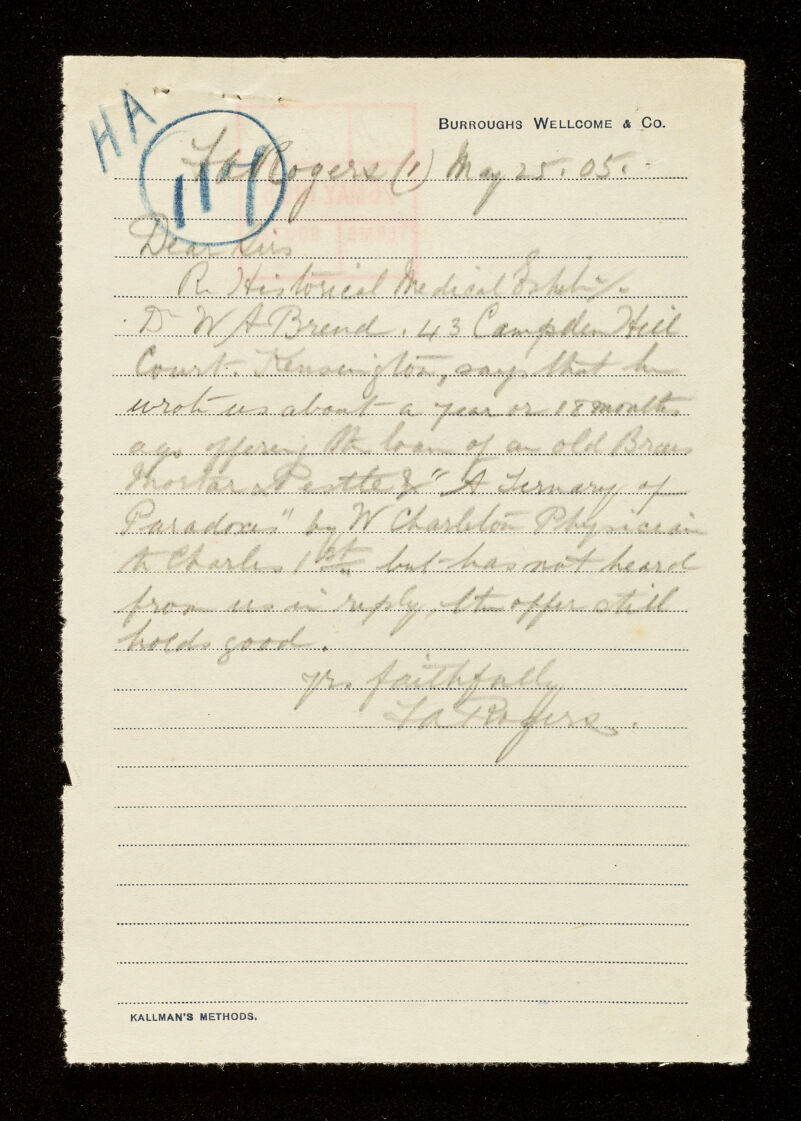 HA
BURROUGHS WELLCOME & Co.
F A Rogers (1) May 25. 05.
Dear Sirs
Re Historical Medical Exhibn.
Dr W A Brend. 43 Campden Hill
Court. Kensington, says that he
wrote us about a year or 18 months
ago offering the loan of an old Brass
Mortar & Pestle & "A Ternary of
Paradoxes" by W Charleton Physician
to Charles 1st but has not heard
from us in reply, the offer still
holds good.
yrs faithfully
F A Rogers.
KALLMAN'S METHODS.